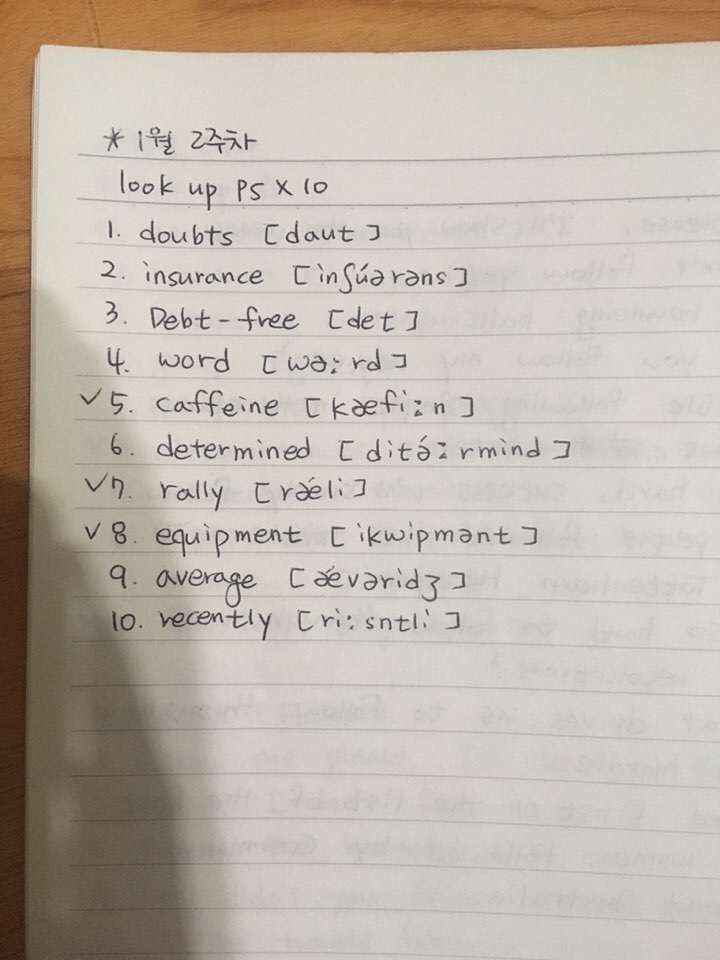 * 1월 2주차
look up PS X 10
1. doubts [daut]
2. insurance [inʃúərəns]
3. Debt-free [det]
4. word [wə:rd]
✓5. caffeine [kæfi:n]
6. determined [ditə́:rmind]
✓7. rally [rǽli]
✓8. equipment [ikwipmənt]
9. average [ǽvəridʒ]
10. recently [ri:sntli]